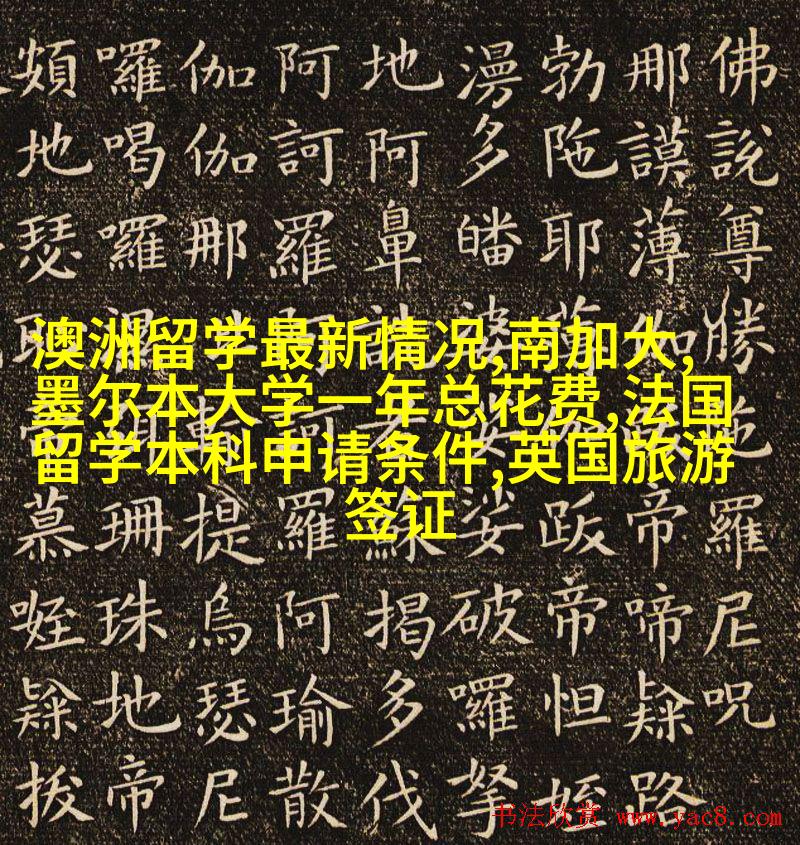 佛說尊勝陁羅尼呪
那謨薄伽帝啼隸路
勃陁耶跋帝怛姪
漫多皤婆娑破囉拏
地阿鼻詵者揭多伐
阿訶羅阿訶羅阿瑜散
伽伽那輸提烏瑟尼
囉喝囉珊珠地帝
頞地瑟慕㗌隸拔
澳洲留学最新情况,南加大,
墨尔本大学一年总花费,法国
留学本科申请条件,英国旅游
签证
书法欣赏 www.yac8.com